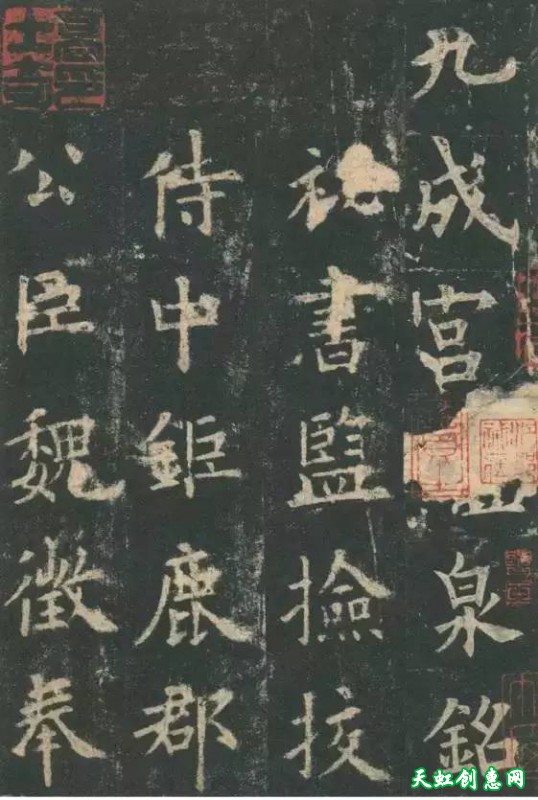 九成宮醴泉銘
祕書監撿挍
侍中鉅鹿郡
公臣魏徵奉
天虹创惠网